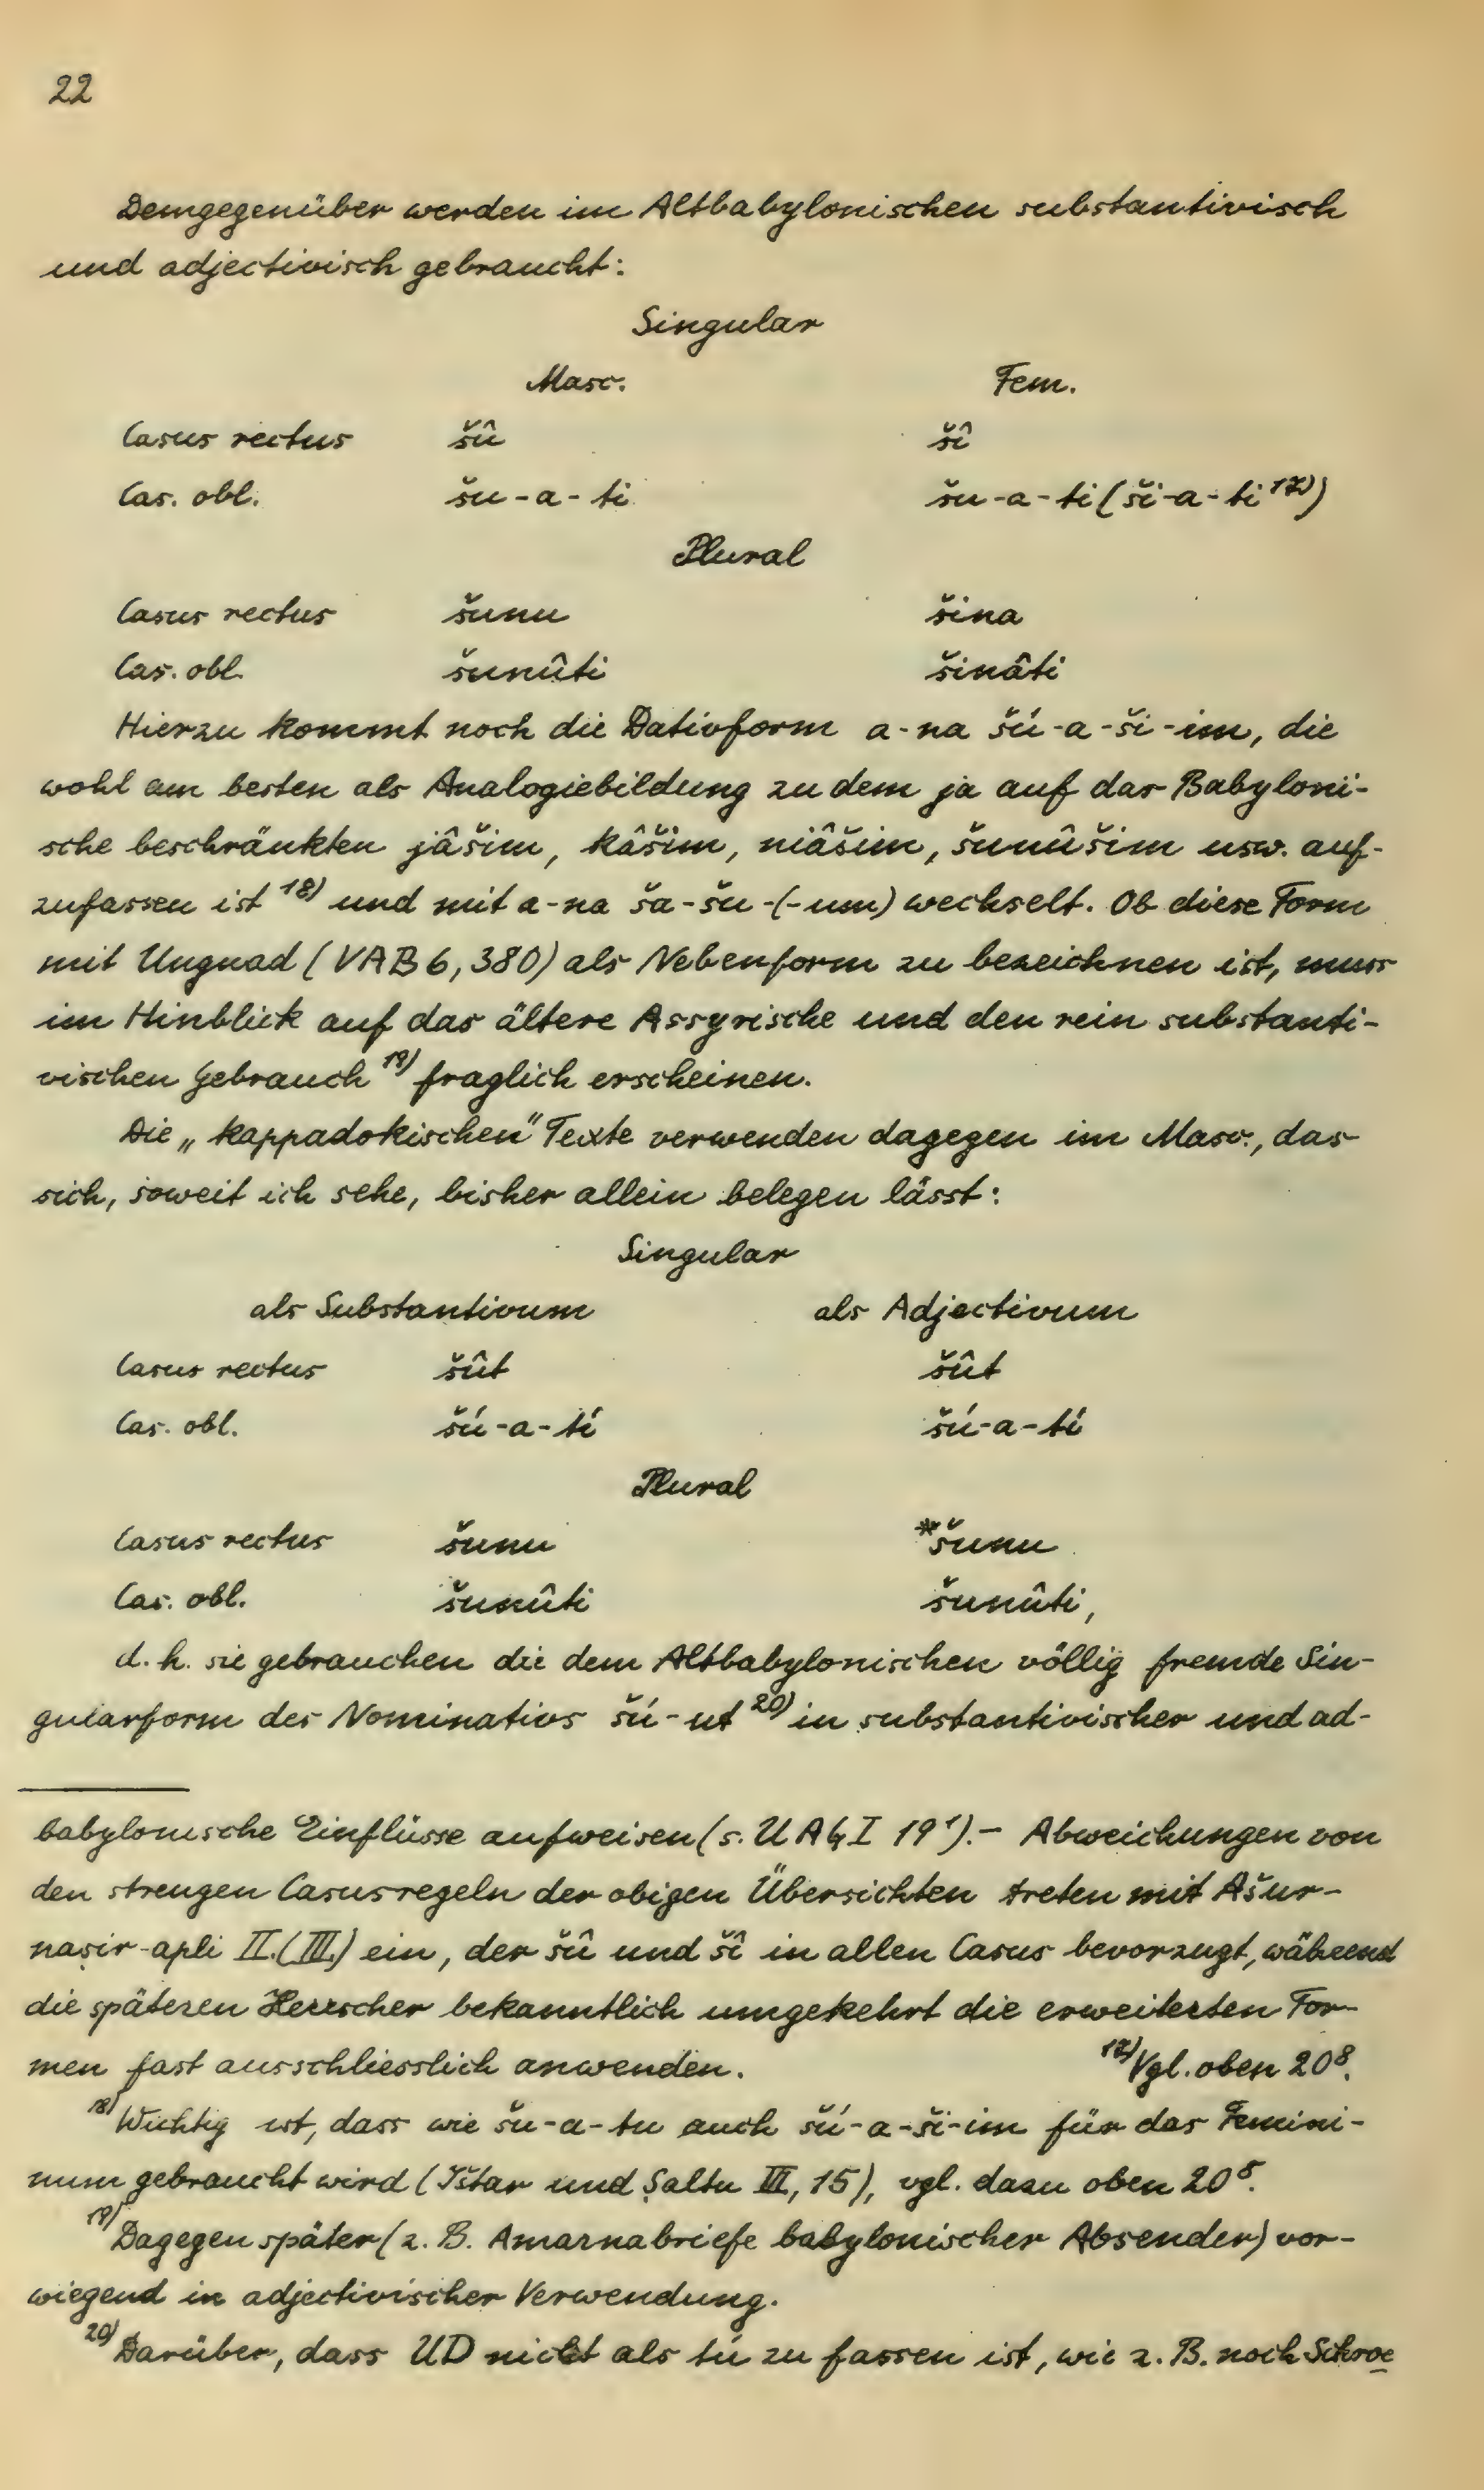 22
Demgegenüber werden im Altbabylonischen substantivisch
und adjectivisch gebraucht:
Singular
Masc. Fem.
Casus rectus šû šî
Cas. obl. šu-a-ti šu-a-ti (ši-a-ti 17))
Plural
Casus rectus šunu šina
Cas. obl. šunûti šinâti
Hierzu kommt noch die Dativform a-na šú-a-ši-im, die
wohl am besten als Analogiebildung zu dem ja auf das Babyloni-
sche beschränkten jâšim, kâšim, niâšim, šunûšim usw. auf-
zufassen ist 18) und mit a-na ša-šu-(-um) wechselt. Ob diese Form
mit Ungnad (VAB 6, 380) als Nebenform zu bezeichnen ist, muss
im Hinblick auf das ältere Assyrische und den rein substanti-
vischen Gebrauch 19) fraglich erscheinen.
Die „kappadokischen" Texte verwenden dagegen im Masc., das
sich, soweit ich sehe, bisher allein belegen lässt:
Singular
als Substantivum als Adjectivum
Casus rectus šût šût
Cas. obl. šú-a-tí šú-a-tí
Plural
Casus rectus šunu *šunu
Cas. obl. šunûti šunûti,
d. h. sie gebrauchen die dem Altbabylonischen völlig fremde Sin-
gularform des Nominativs šú-ut 20) in substantivischer und ad-
babylonische Einflüsse aufweisen (s. UAG I 19¹).- Abweichungen von
den strengen Casusregeln der obigen Übersichten treten mit Ašur-
naṣir-apli II. (III.) ein, der šû und šî in allen Casus bevorzugt, während
die späteren Herrscher bekanntlich umgekehrt die erweiterten For-
men fast ausschliesslich anwenden. 17) Vgl. oben 20⁸.
18) Wichtig ist, dass wie šu-a-tu auch šú-a-ši-im für das Femini-
num gebraucht wird (Ištar und Ṣaltu III, 15), vgl. dazu oben 20⁸.
19) Dagegen später (z. B. Amarnabriefe babylonischer Absender) vor-
wiegend in adjectivischer Verwendung.
20) Darüber, dass UD nicht als tú zu fassen ist, wie z. B. noch Schroe